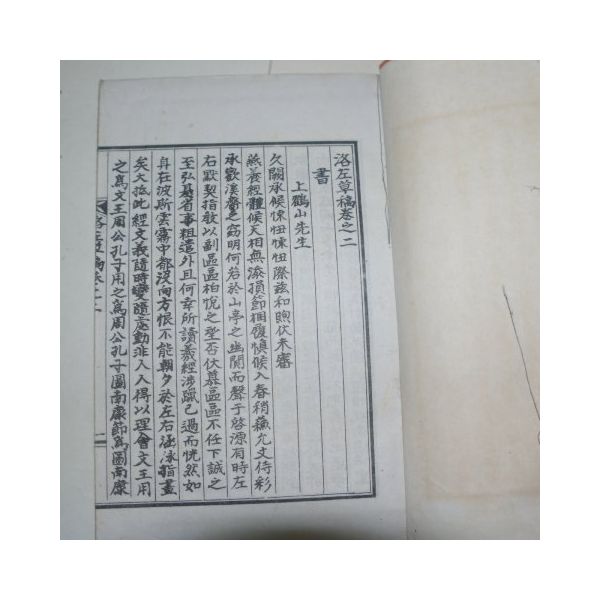 洛左草稿卷之二
書
上鶴山先生
久闕承候悚忸悚忸際玆和煦伏未審
燕養經體候天相無諐損節捆履愼候入春稍蘇允文侍彩
承歡溪聲之窈明何若於山亭之幽閒而聲子啓源有時左
右默契指敎以副區區柏悅之望否伏慕區區不任下誠之
至弘省事粗遣外且何幸所讀羲經涉躐已過而恍然如
身在波斯雲霧中都沒向方恨不能朝夕於左右涵泳指畫
矣大抵此經文義隨時變隨處動非入人得以理會文王用
之爲文王周公孔子用之爲周公孔子圖南康節爲圖南康